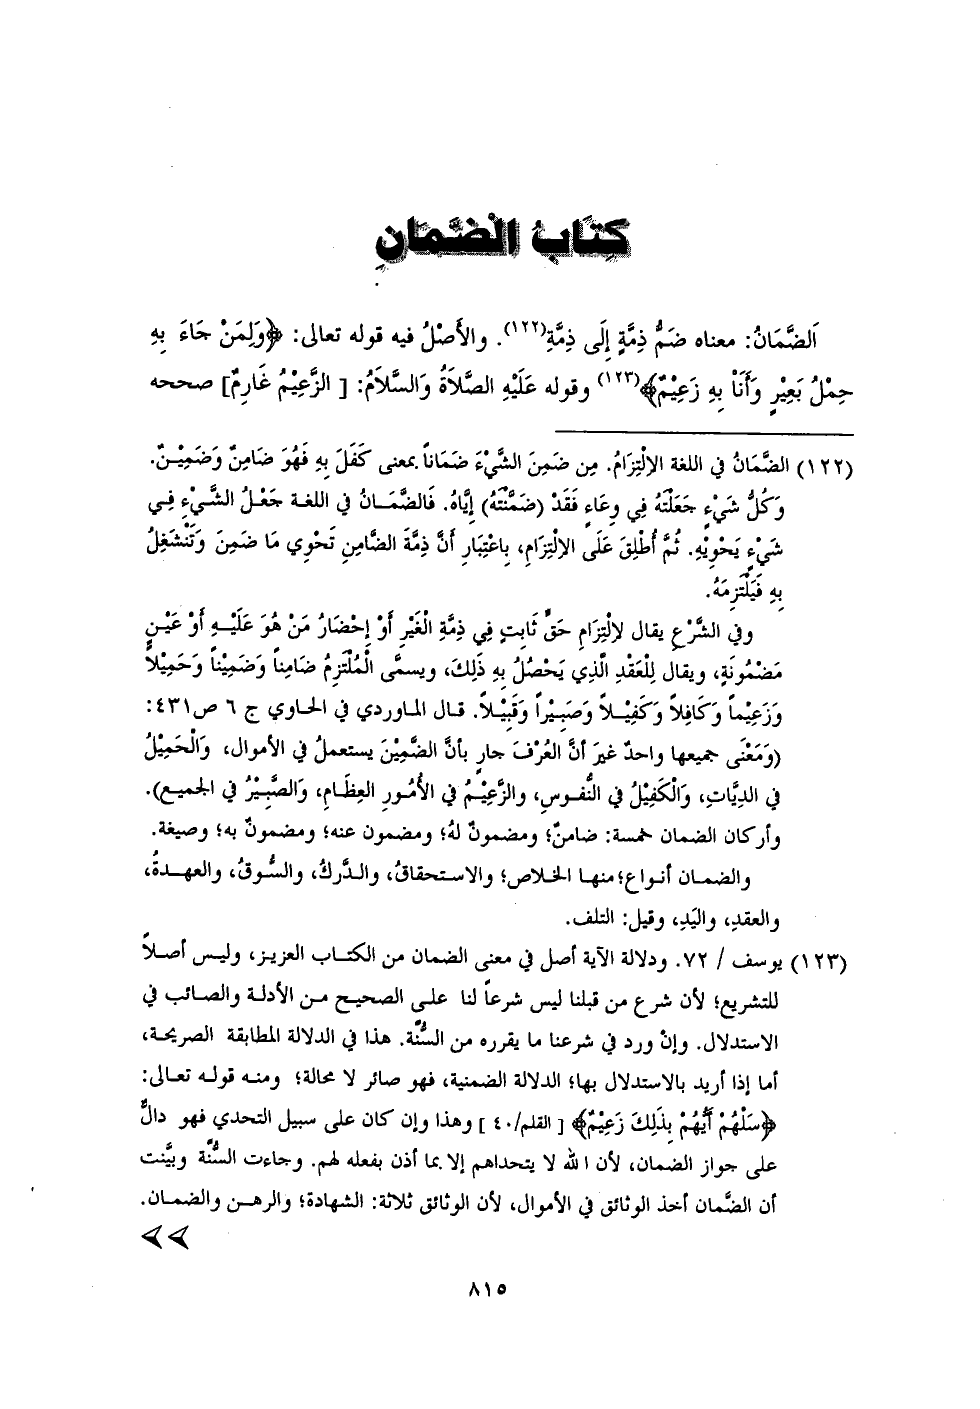 كِتَابُ الْضَّمَانِ
اَلضَّمَانُ: معناه ضَمُّ ذِمَّةٍ إِلَى ذِمَّةٍ(١٢٢). والأَصْلُ فيه قوله تعالى: ﴿وَلِمَنْ جَاءَ بِهِ
حِمْلُ بَعِيْرٍ وَأَنَاْ بِهِ زَعِيْمٌ﴾(١٢٣) وقوله عَلَيْهِ الصَّلاَةُ وَالسَّلاَمُ: [ الزَّعِيْمُ غَارِمٌ] صححه
(١٢٢) الضَّمَانُ في اللغة الإِلْتِزَامُ. مِن ضَمِنَ الشَّيْءَ ضَمَاناً بمعنى كَفَلَ بِهِ فَهُوَ ضَامِنٌ وَضَمِيْنٌ.
وَكُلُّ شَيْءٍ جَعَلْتَهُ فِي وِعَاءٍ فَقَدْ (ضَمَّنْتَهُ) إِيَّاهُ. فَالضَّمَانُ في اللغة جَعْلُ الشَّيْءِ فِي
شَيْءٍ يَحْوِيْهِ. ثُمَّ أُطْلِقَ عَلَى الإِلْتِزَامِ، بِاعْتِبَارِ أَنَّ ذِمَّةَ الضَّامِنِ تَحْوِي مَا ضَمِنَ وَتَنْشَغِلُ
بِهِ فَيَلْتَزِمَهُ.
وفي الشَّرْعِ يقال لإِلْتِزَامِ حَقٍّ ثَابِتٍ فِي ذِمَّةِ الْغَيْرِ أَوْ إِحْضَارُ مَنْ هُوَ عَلَيْهِ أَوْ عَيْنٍ
مَضْمُونَةٍ، ويقال لِلْعَقْدِ الَّذِي يَحْصُلُ بِهِ ذَلِكَ، ويسمَّى الْمُلْتَزِمُ ضَامِناً وَضَمِيْناً وَحَمِيْلاً
وَزَعِيْماً وَكَافِلاً وَكَفِيْلاً وَصَبِيْراً وَقَبِيْلاً. قال الماوردي في الحاوي ج ٦ ص٤٣١:
(وَمَعْنَى جميعها واحدٌ غيرَ أنَّ العُرْفَ جارٍ بأنَّ الضَّمِيْنَ يستعملُ في الأموال، وَالْحَمِيْلُ
في الدِيَّاتِ، وَالْكَفِيْلُ في النُّفوس، والزَّعِيْمُ في الأُمُورِ العِظَامِ، وَالصَّبِيْرُ في الجميع).
وأركان الضمان خمسة: ضامنٌ؛ ومضمونٌ لهُ؛ ومضمون عنه؛ ومضمونٌ به؛ وصيغة.
والضمان أنواع؛ منها الخلاص؛ والاستحقاقُ، والدَّركُ، والسُّوقُ، والعهدةُ،
والعقدِ، واليَدِ، وقيل: التلف.
(١٢٣) يوسف / ٧٢. ودلالة الآية أصل في معنى الضمان من الكتاب العزيز، وليس أصلاً
للتشريع؛ لأن شرع من قبلنا ليس شرعاً لنا على الصحيح من الأدلة والصائب في
الاستدلال. وإنْ ورد في شرعنا ما يقرره من السُّنَّة. هذا في الدلالة المطابقة الصريحة،
أما إذا أريد بالاستدلال بها؛ الدلالة الضمنية، فهو صائر لا محالة؛ ومنه قوله تعالى:
﴿سَلْهُمْ أَيُّهُمْ بِذَلِكَ زَعِيْمٌ﴾ [ القلم/٤٠ ] وهذا وإن كان على سبيل التحدي فهو دالٌّ
على جواز الضمان، لأن الله لا يتحداهم إلا بما أذن بفعله لهم. وجاءت السُّنَّة وبيَّنت
أن الضَّمان أحد الوثائق في الأموال، لأن الوثائق ثلاثة: الشهادة؛ والرهن والضمان.
٨١٥